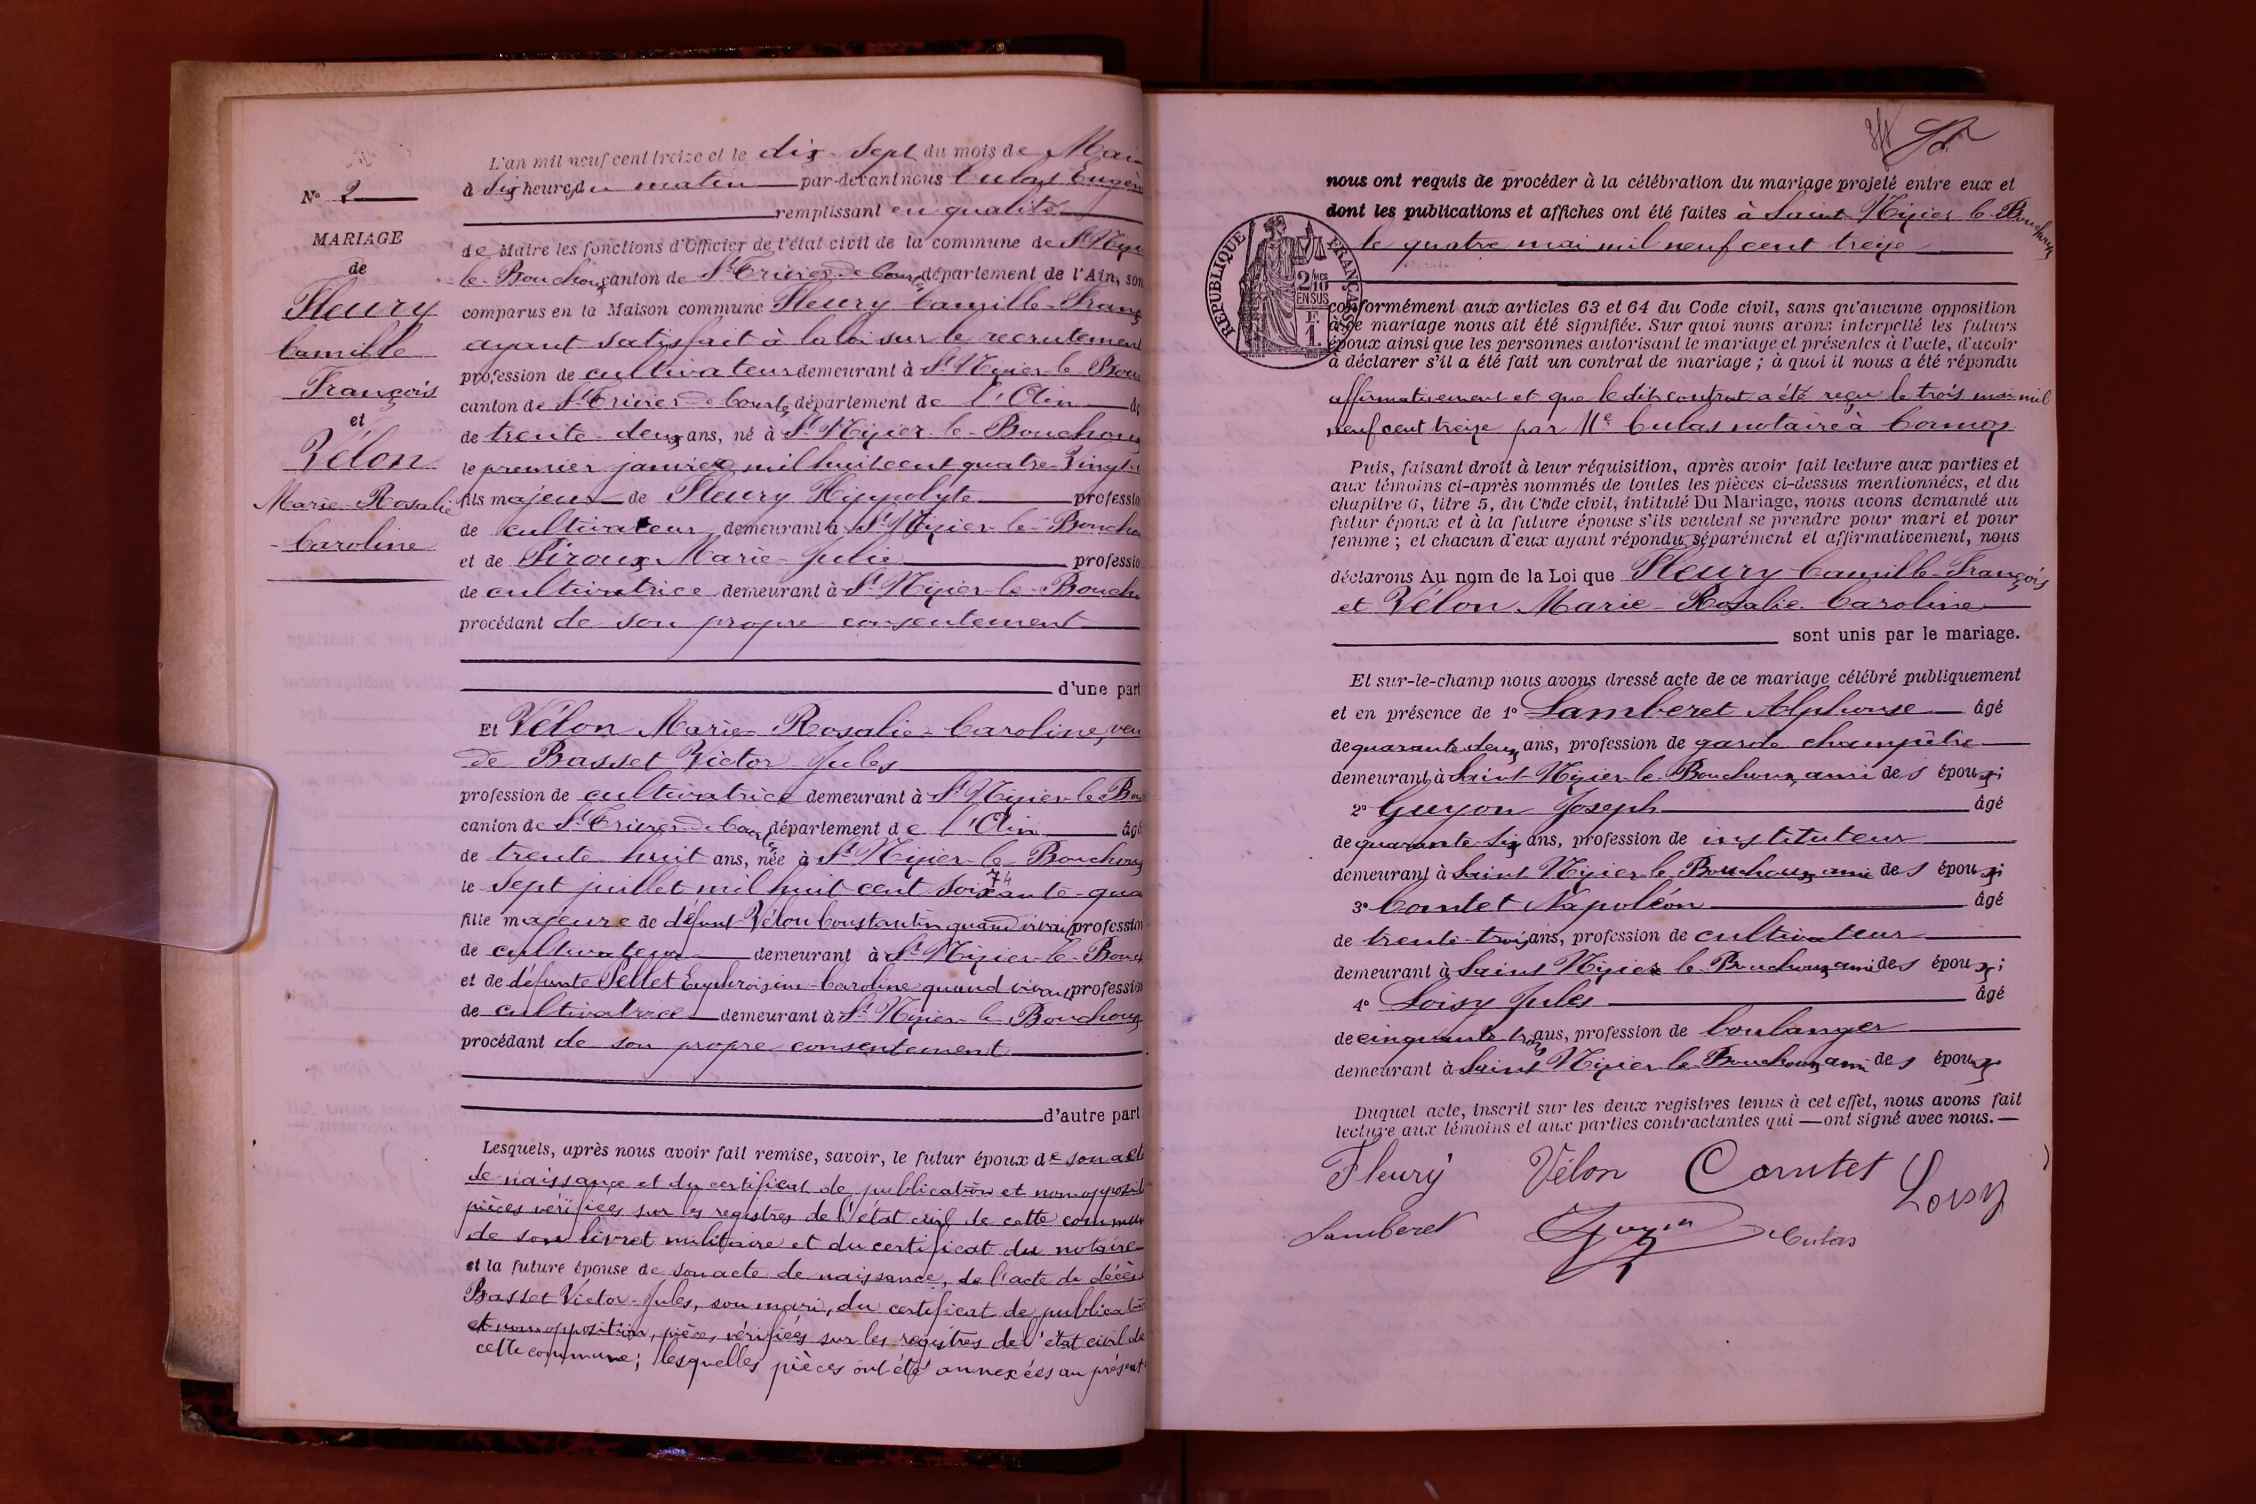 L'an mil neuf cent treize et le dix-sept du mois de Mai
à dix heures du matin par-devant nous Culas Eugène
remplissant en qualité
de Maire les fonctions d'Officier de l'état civil de la commune de St Nizier
le-Bouchoux canton de St Trivier de Courtes département de l'Ain, son
comparus en la Maison commune Fleury Camille-Franç
ayant satisfait à la loi sur le recrutement
profession de cultivateur demeurant à St Nizier-le-Bouc
canton de St Trivier de Courtes département de l'Ain
de trente-deux ans, né à St Nizier-le-Bouchoux
le premier janvier mil huit cent quatre-vingt
fils majeur de Fleury Hippolyte professio
de cultivateur demeurant à St Nizier-le-Boucho
et de Piroux Marie-Julie professio
de cultivatrice demeurant à St Nizier-le-Boucho
procédant de son propre consentement
d'une part
N° 2
MARIAGE
de
Fleury
Camille
François
et
Vélon
Marie-Rosalie
Caroline
Et Vélon Marie-Rosalie-Caroline, veu
de Basset Victor-Jules
profession de cultivatrice demeurant à St Nizier-le-Bou
canton de St Trivier de Courtes département de l'Ain âgé
de trente-huit ans, née à St Nizier-le-Bouchoux
74
le sept juillet mil huit cent soixante-qua
fille majeure de défunt Vélon Constantin quand vivait profession
de cultivateur demeurant à St Nizier-le-Bouch
et de défunte Pellet Euphroisine-Caroline quand vivait profession
de cultivatrice demeurant à St Nizier-le-Bouchoux
procédant de son propre consentement
d'autre part
Lesquels, après nous avoir fait remise, savoir, le futur époux de son acte
de naissance et du certificat de publication et non opposit
pièces vérifiées sur les registres de l'état civil de cette commune
de son livret militaire et du certificat du notaire
et la future épouse de son acte de naissance, de l'acte de décès
Basset Victor-Jules, son mari, du certificat de publication
et non opposition, pièces vérifiées sur les registres de l'état civil de
cette commune; lesquelles pièces ont été annexées au présent
nous ont requis de procéder à la célébration du mariage projeté entre eux et
dont les publications et affiches ont été faites à Saint Nizier le Bouchoux
le quatre mai mil neuf cent treize
RÉPUBLIQUE FRANÇAISE
2/10 MES
EN SUS
F.
1.
conformément aux articles 63 et 64 du Code civil, sans qu'aucune opposition
à ce mariage nous ait été signifiée. Sur quoi nous avons interpellé les futurs
époux ainsi que les personnes autorisant le mariage et présentes à l'acte, d'avoir
à déclarer s'il a été fait un contrat de mariage; à quoi il nous a été répondu
affirmativement et que le dit contrat a été reçu le trois mai mil
neuf cent treize par Me Culas notaire à Cormoz
Puis, faisant droit à leur réquisition, après avoir fait lecture aux parties et
aux témoins ci-après nommés de toutes les pièces ci-dessus mentionnées, et du
chapitre 6, titre 5, du Code civil, intitulé Du Mariage, nous avons demandé au
futur époux et à la future épouse s'ils veulent se prendre pour mari et pour
femme; et chacun d'eux ayant répondu séparément et affirmativement, nous
déclarons Au nom de la Loi que Fleury Camille-François
et Vélon Marie-Rosalie-Caroline
sont unis par le mariage.
Et sur-le-champ nous avons dressé acte de ce mariage célébré publiquement
et en présence de 1° Lamberet Alphonse âgé
de quarante-deux ans, profession de garde champêtre
demeurant à Saint Nizier-le-Bouchoux, ami des époux;
2° Guyon Joseph âgé
de quarante-six ans, profession de instituteur
demeurant à Saint Nizier le Bouchoux, ami des époux;
3° Comtet Napoléon âgé
de trente-trois ans, profession de cultivateur
demeurant à Saint Nizier le Bouchoux, ami des époux;
4° Loisy Jules âgé
de cinquante-trois ans, profession de boulanger
demeurant à Saint Nizier-le-Bouchoux, ami des époux
Duquel acte, inscrit sur les deux registres tenus à cet effet, nous avons fait
lecture aux témoins et aux parties contractantes qui ont signé avec nous.
Fleury Vélon Comtet Loisy
Lamberet Guyon Culas